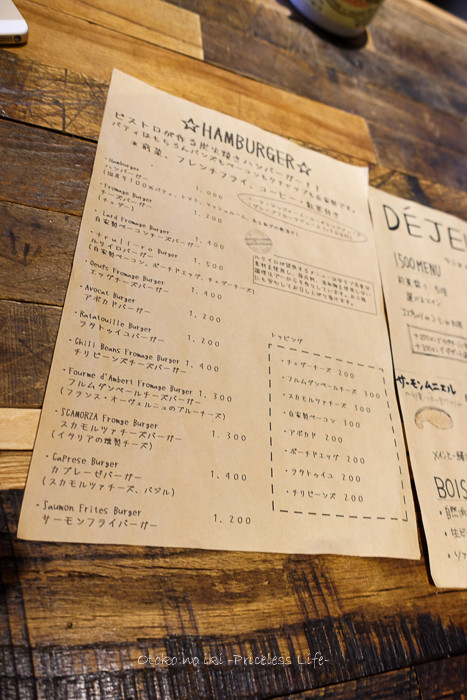 ☆HAMBURGER☆
ビストロが作る炭火焼きハンバーガー!!
パティはもちろんバンズもベーコンもケチャップも自家製です。
★前菜、フレンチフライ、コーヒー・紅茶付き
・Hamburger
ハンバーガー 1,000
・Fromage Burger
チーズバーガー 1,200
(チェダー)
・Lard Fromage Burger 1,400
自家製ベーコンチーズバーガー
1,500
(自家製ベーコン、ポーチドエッグ、チェダーチーズ)
・Oeufs Fromage Burger 1,400
エッグチーズバーガー
・Avocat Burger
アボカドバーガー 1,200
・Ratatouille Burger
ラタトゥイユバーガー 1,200
・Chili Beans Fromage Burger 1,400
チリビーンズチーズバーガー
・Fourme d'Ambert Fromage Burger 1,300
フルムダンベールチーズバーガー
(フランス・オーヴェルニュのブルーチーズ)
・SCAMORZA Fromge Burger
スカモルツァチーズバーガー 1,300
(イタリアの燻製チーズ)
・CaPrese Burger
カプレーゼバーガー 1,400
(スカモルツァチーズ、バジル)
・Saumon Frites Burger
サーモンフライバーガー 1,200
トッピング
・チェダーチーズ 200
・フルムダンベールチーズ 300
・スカモルツァチーズ 300
・自家製ベーコン 300
・アボカド 200
・ポーチドエッグ 200
・ラタトゥイユ 200
・チリビーンズ 200
DÉJE
1500 MENU
サーモンムニエル
BOIS
・自然派
・生ビ
Otoko no iki -Priceless Life-